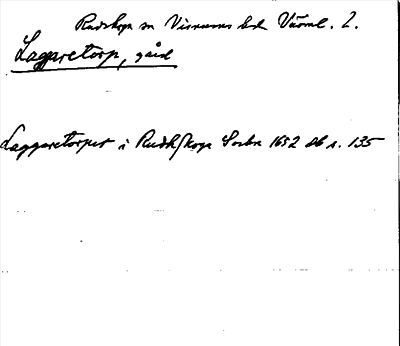 Rudskoga sn Visnums hd Värml. l.
Lagaretorp, gård
Laggaretorpet i Rudhskoga Sochn 1652 db s. 135